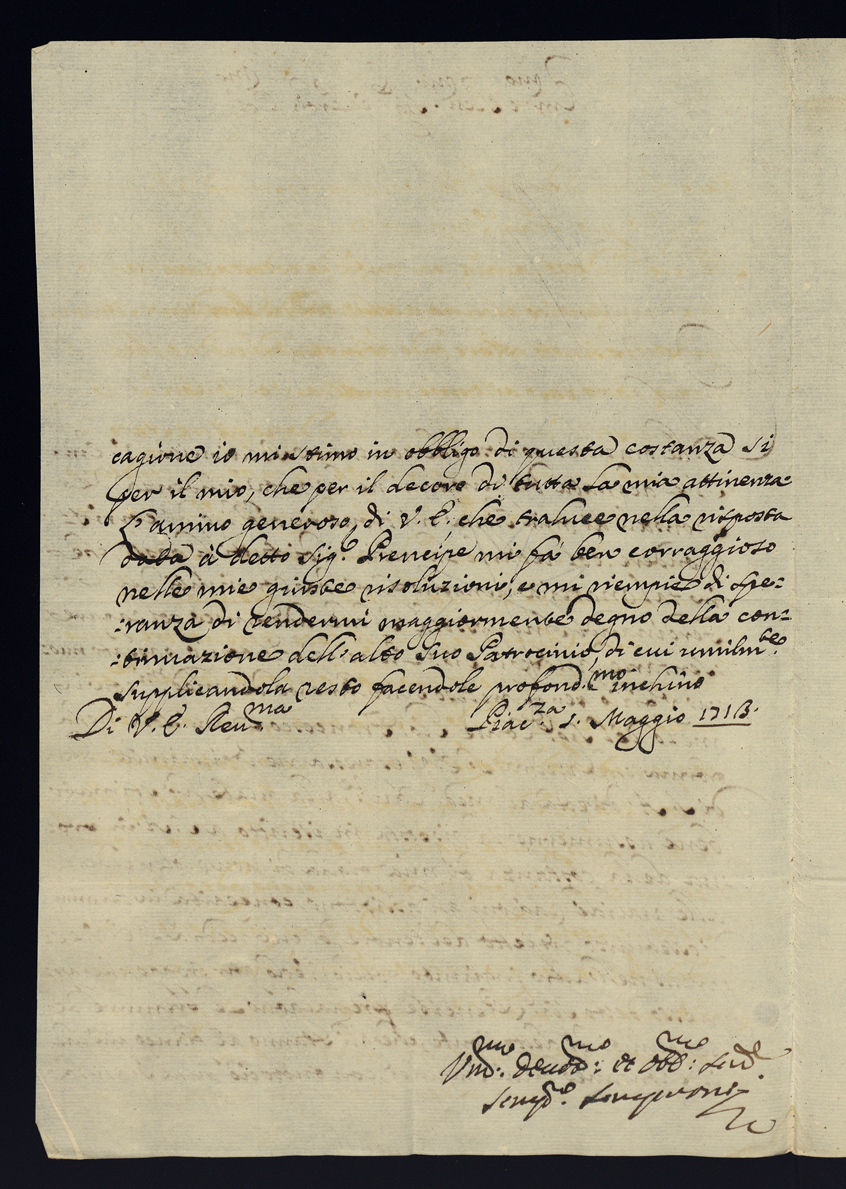 cagione io mi stimo in obbligo di questa costanza si
per il mio, che per il decoro di tutta la mia attinenza
L'animo generoso, di V. E. che traluce nella risposta
data à detto Sig.r Prencipe mi fá ben corraggioso
nelle mie giuste risoluzioni, e mi riempie di spe=
=ranza di rendermi maggiormente degno della con=
=tinuazione dell'alto suo Patrocinio, di cui umilm.te
supplicandola resto facendole profond.mo inchino
Di V. E. Reu.ma Piac.za 1. Maggio 1713.
Um.mo deuot.mo et obb.mo Seru.